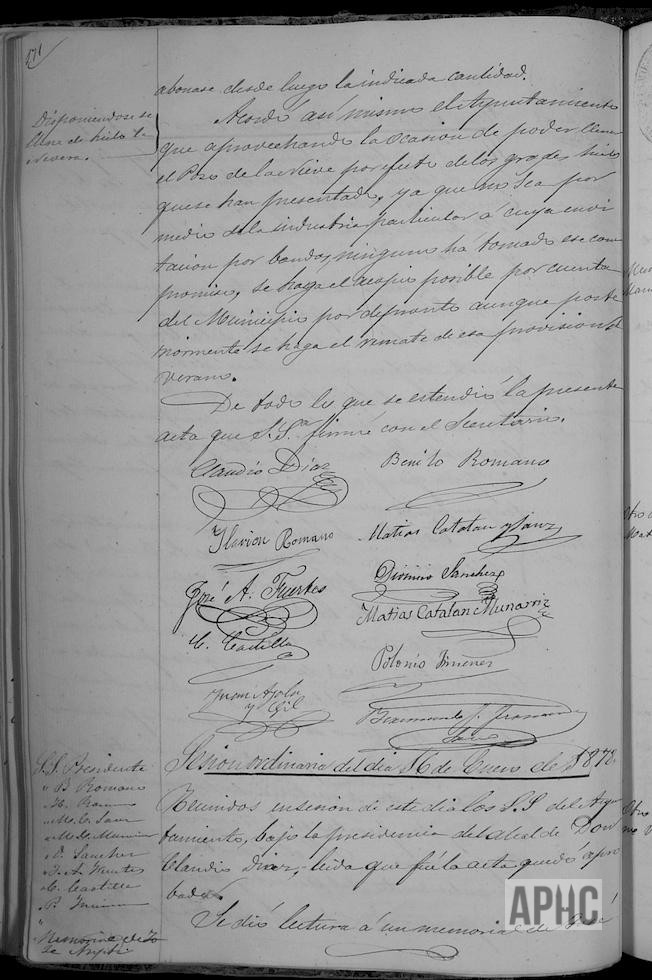 171
abonase desde luego la indicada cantidad.
Disponiendose se
llene de hielo la
nevera.
Acordó así mismo el Ayuntamiento
que aprovechando la ocasion de poder llenar
el Pozo de la nieve por efecto de los grandes hielos
que se han presentado, ya que no sea por
medio de la industria particular á cuya invi
tacion por bandos, ninguno ha tomado ese com
promiso, se haga el acopio posible por cuenta
del Municipio por depronto aunque poste
riormente se haga el remate de esa provision de
verano.
De todo lo que se estendió la presente
acta que S.Sª firmó con el Secretario.
Claudio Diaz
Benito Romano
Ilarion Romano
Matias Catalan y Sanz
José A. Fuertes
Dionisio Sanchez
Matias Catalan Munarriz
C. Castilla
Polonio Jimenez
Juan Ayola
y Gil
Bramundo J.
Sesion ordinaria del dia 16 de Enero de 1878.
S.S. Presidente
" B. Romano
" H. Romano
" M. C. Sanz
" M. C. Munarriz
" D. Sanchez
" J. A. Fuertes
" C. Castilla
" P. Jimenez
"
Reunidos en sesion de este dia los S.S del Ayun
tamiento, bajo la presidencia del alcalde Don
Claudio Diaz, leida que fué la acta quedó apro
bada.
Memorial de Jo
se
Se dió lectura á un memorial de José
APHC